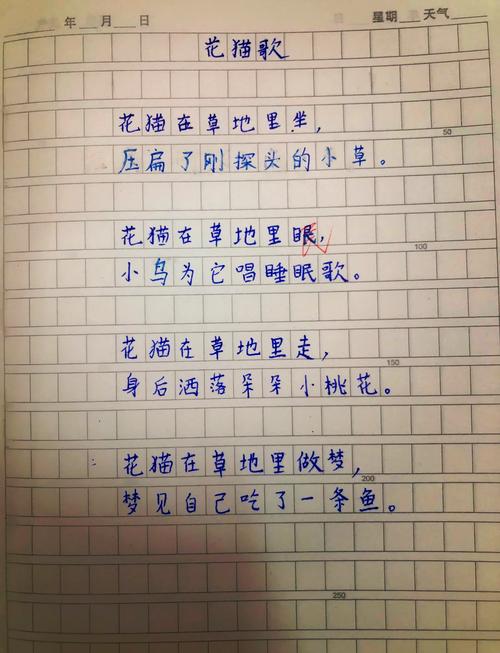 年 月 日 星期 天气
花猫歌
花猫在草地里坐，
压扁了刚探头的小草。
50
花猫在草地里眼，
100
小鸟为它唱睡眠歌。
花猫在草地里走，
150
身后洒落朵朵小桃花。
花猫在草地里做梦，
200
梦见自己吃了一条鱼。
250